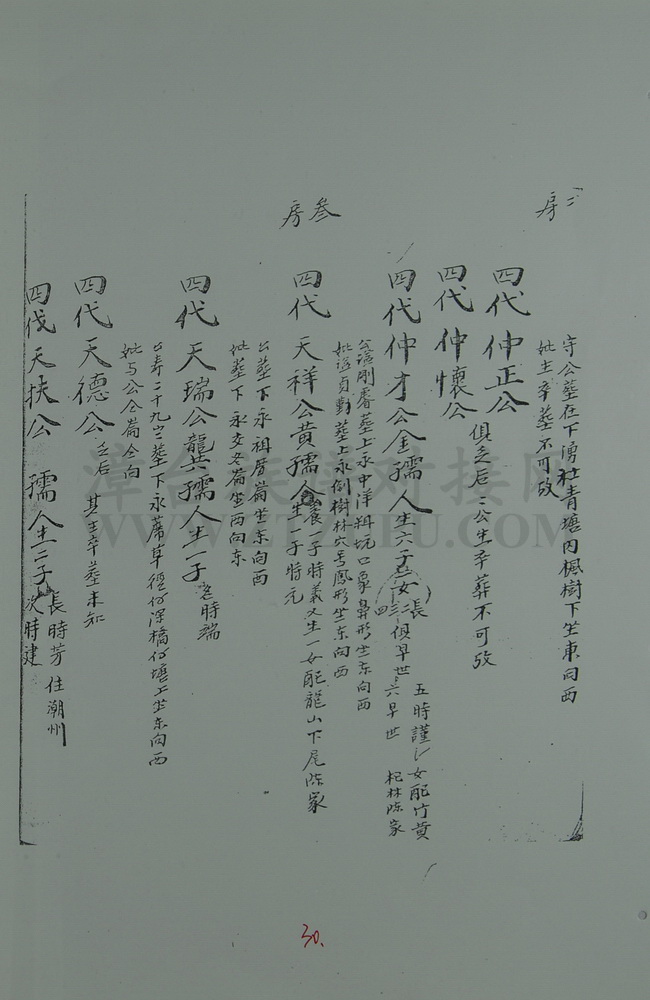 二房
守公墓在下湧社青塘内楓樹下坐東向西
妣生卒墓不可攷
四代仲正公
四代仲懷公
俱乏后二公生卒葬不可攷
四代仲才公金孺人生六子二女
長二三四俱早世六早世
五時謹 女配竹黄
杞林陈家
公諡刚睿墓上永中洋科坑口象鼻形坐东向西
妣諡貞勤墓上永倒樹林穴号鳳形坐东向西
叁房
四代天祥公黄孺人
長一子時義又生一女配龍山下尾陈家
生一子時元
公墓下永祖厝崙坐东向西
妣墓下永交冬崙坐西向东
四代天瑞公龔孺人生一子
名時瑞
公寿二十九岁墓下永蓆草徑仔深橋仔塘上坐东向西
妣与公仝崙仝向
四代天德公
乏后
其生卒墓未知
四代天扶公 孺人生二子
長時芳住潮州
次時建
30.
漳台族譜对接网
WWW.ZTZUPU.COM